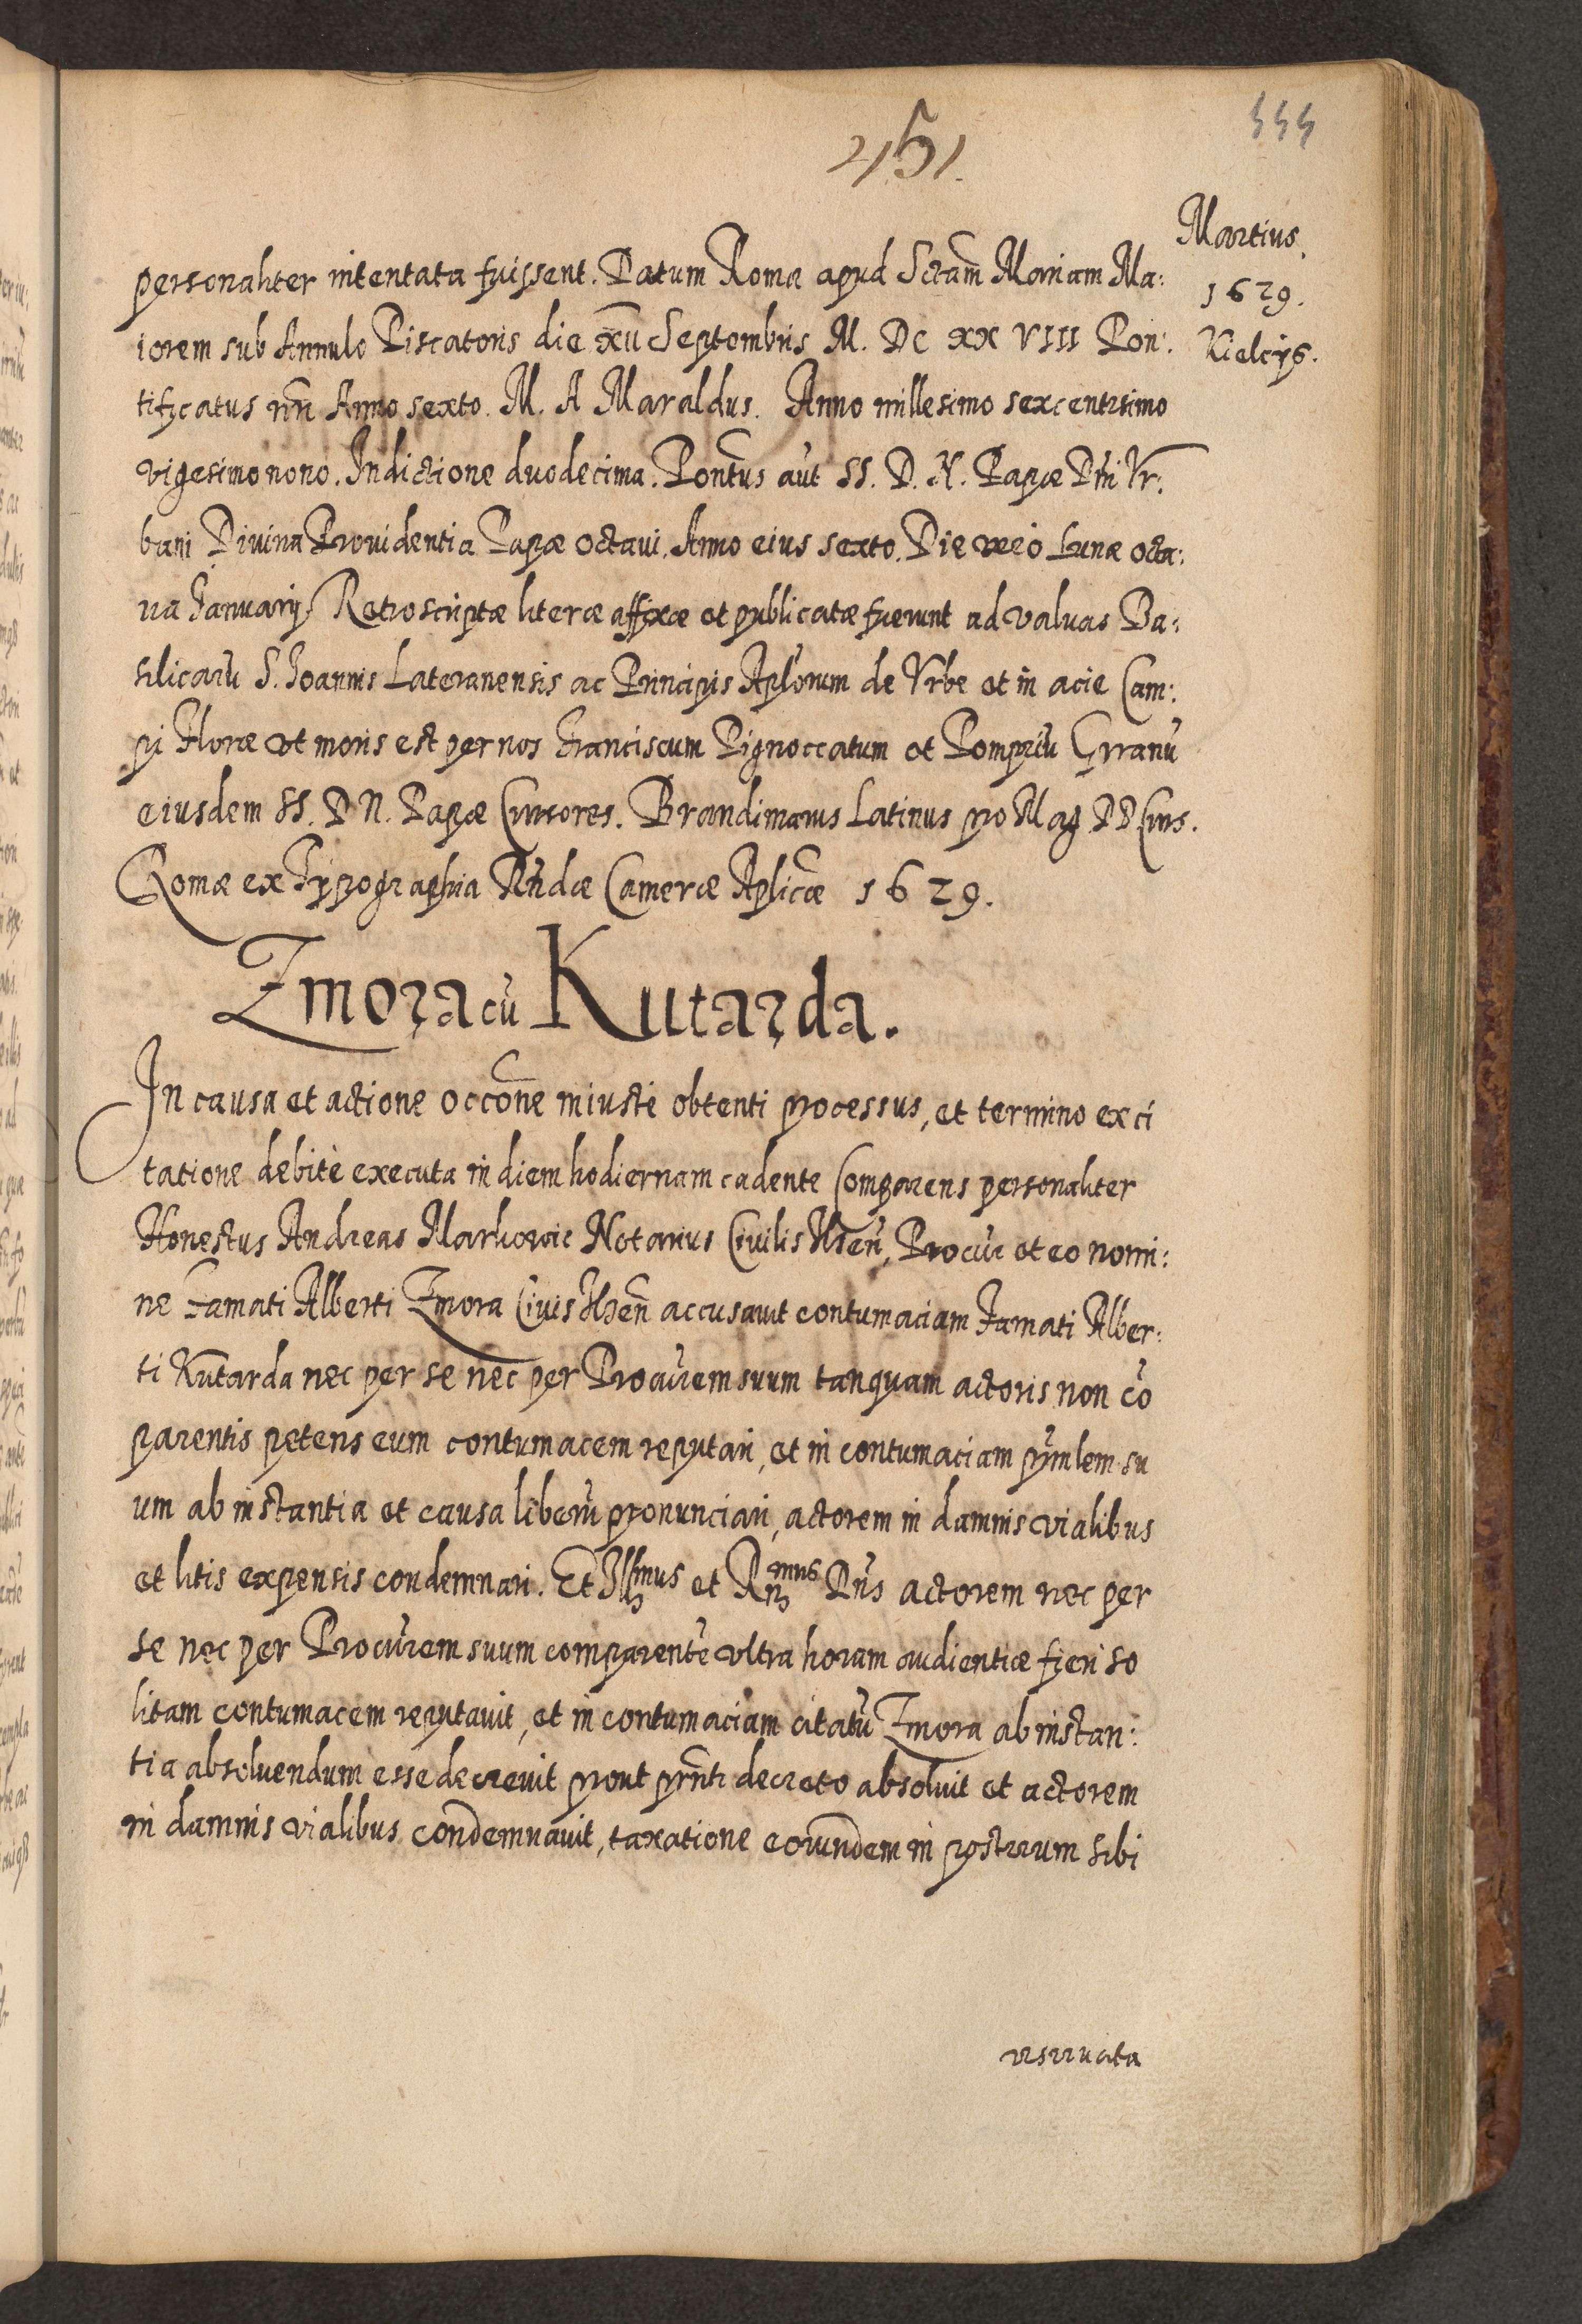 451.
444
Martius.
1629.
Kielcijs.
personaliter intentata fuissent. Datum Romæ apud Sctam Mariam Ma:
iorem sub Annulo Piscatoris die xvii Septembris M. DC XX VIII Pon:
tificatus nri Anno sexto. M. A Maraldus. Anno millesimo sexcentesimo
vigesimo nono. Indictione duodecima. Pontus aut SS. D. N. Papæ Dni Vr:
bani Divina Providentia Papæ octavi. Anno eius sexto. Die vero Lunæ octa:
va Januarij. Retroscriptæ literæ affixæ et publicatæ fuerunt ad valvas Ba:
silicaru S. Joannis Lateranensis ac Principis Aplorum de Vrbe et in acie Cam:
pi Floræ vt moris est per nos Franciscum Pignoccatum et Pompeiu
eiusdem SS. D N. Papæ Cursores. Brandimarus Latinus pro Mag. DD Curs.
Romæ ex Typographia Rndæ Cameræ Aplicæ 1629.
Zmora cu Kutarda.
In causa et actione occone iniuste obtenti processus, et termino ex ci
tatione debite executa in diem hodiernam cadente Comparens personaliter
Honestus Andreas Markowic Notarius Civilis Procur et eo nomi:
ne Famati Alberti Zmora Civis accusavit contumaciam Famati Alber:
ti Kutarda nec per se nec per Procurem suum tanquam actoris non co
parentis petens eum contumacem reputari, et in contumaciam su
um ab instantia et causa liberu pronunciari, actorem in damnis vialibus
et litis expensis condemnari. Et Illmus et Rmus Dns actorem nec per
se nec per Procurem suum comparente vltra horam audientiæ fieri so
litam contumacem reputavit, et in contumaciam citatu Zmora ab instan:
tia absolvendum esse decrevit prout prnti decreto absolvit et actorem
in damnis vialibus condemnavit, taxatione eorundem in posterum sibi
reservata